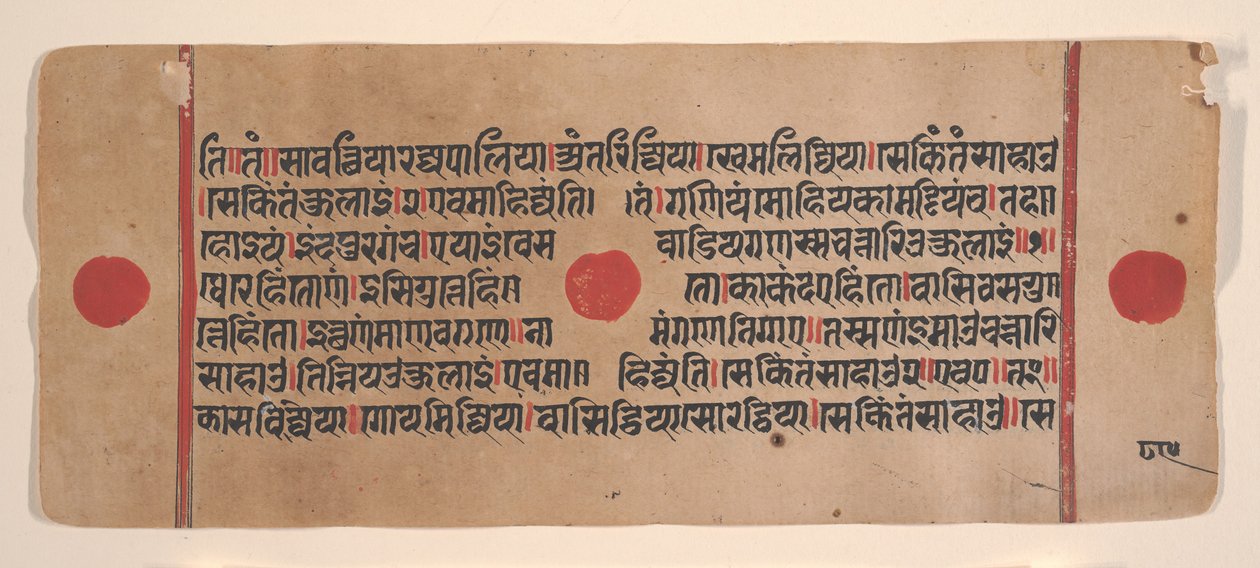 ति॥तं॥सावच्छियारज्जपालिया।अंतरिज्जिया।खेमलिज्जिया।सेकिंतंसाहाउ
।सेकिंतंकुलाइं।२एवमाहिज्जंति।तं।गणियंमेहियकामट्टियंच।तहहो
होइयं।इंदपुरगंच।एयाइंवेसवाडियगणस्सचत्तारिउकुलाइं॥१॥
थेरेहिंतोणं।इसिगुत्तेहिंतो।काकंदएहिंतो।वासिवसगु
त्तेहिंतो।इच्छणंमाणवगणे॥नामंगणेनिगए॥तस्सणंइमाउचत्तारि
साहाउ।तिन्नियउकुलाइं।एवमाहिज्जंति।सेकिंतंसाहाउ२॥एवए॥तं०॥
कासविज्जिया॥गोयमिज्जिया।वासिट्ठिया।सोरट्ठिया।सेकिंतंसाहाउ॥से